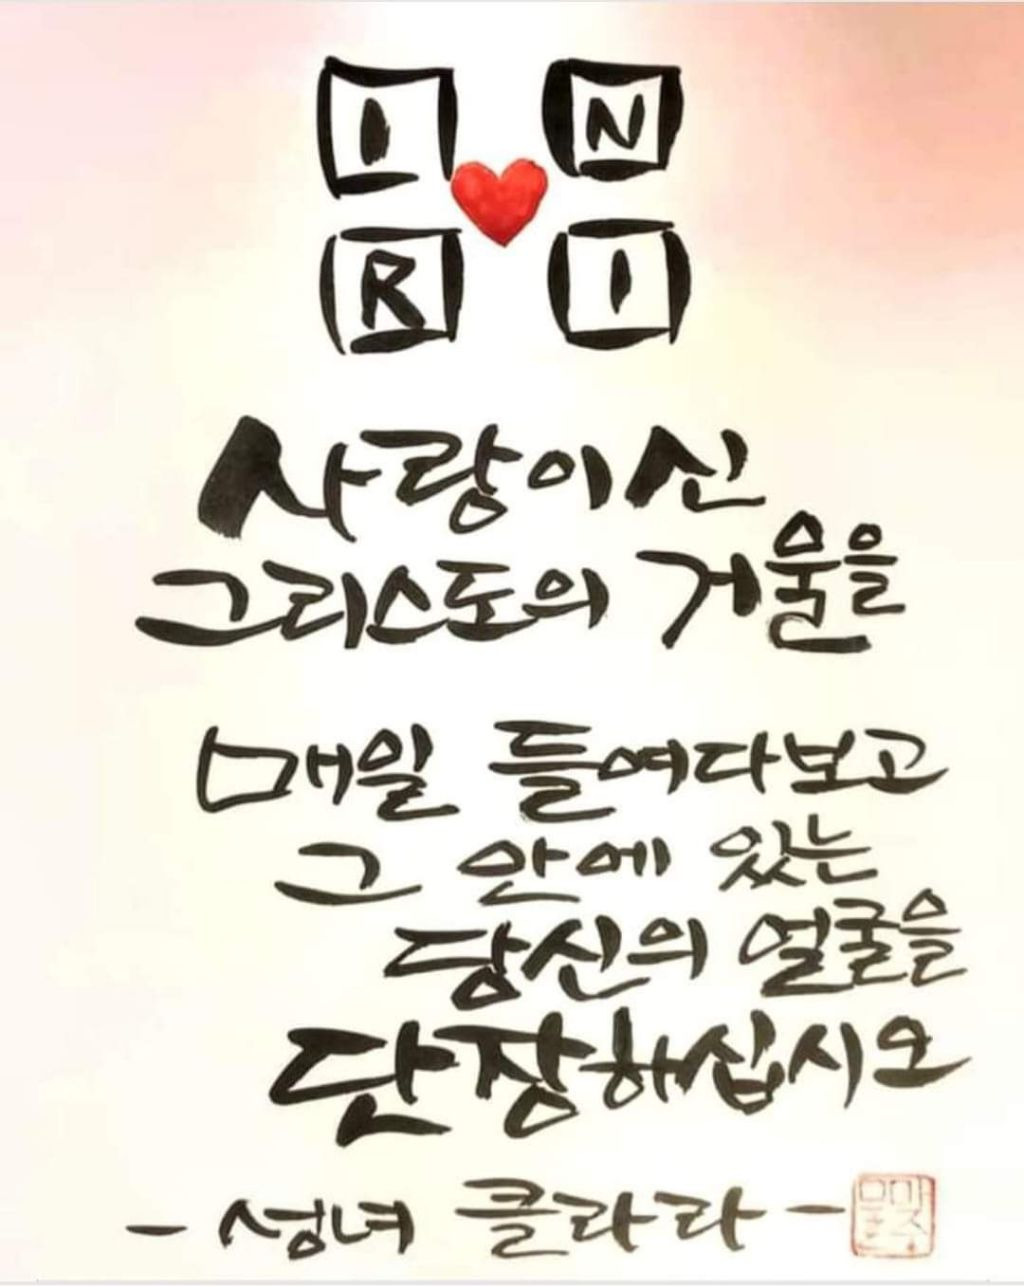 I N
R I
사랑이신
그리스도의 거울을
매일 들여다보고
그 안에 있는
당신의 얼굴을
단장하십시오
- 성녀 클라라 -